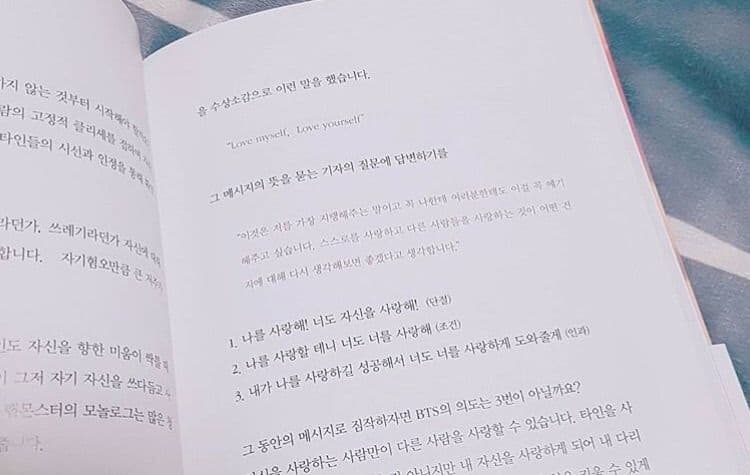 하지 않는 것부터 시작해야
람의 고정적 클리셰를 접하며
타인들의 시선과 인정을 통해
라던가, 쓰레기라던가 자신에 대해
합니다. 자기혐오만큼 큰 저주
인도 자신을 향한 미움이 싹틀 때
이 그저 자기 자신을 쓰다듬고
랩몬스터의 모놀로그는 많은
줍니다.
을 수상소감으로 이런 말을 했습니다.
“Love myself, Love yourself”
그 메시지의 뜻을 묻는 기자의 질문에 답변하기를
“이것은 저를 가장 지탱해주는 말이고 꼭 나한테 여러분한테도 이걸 꼭 얘기
해주고 싶습니다. 스스로를 사랑하고 다른 사람들을 사랑하는 것이 어떤 건
지에 대해 다시 생각해보면 좋겠다고 생각합니다.”
1. 나를 사랑해! 너도 자신을 사랑해! (단절)
2. 나를 사랑할 테니 너도 너를 사랑해 (조건)
3. 내가 나를 사랑하길 성공해서 너도 너를 사랑하게 도와줄게 (인과)
그 동안의 메시지로 짐작하자면 BTS의 의도는 3번이 아닐까요?
을 사랑하는 사람만이 다른 사람을 사랑할 수 있습니다. 타인을 사
아니지만 내 자신을 사랑하게 되어 내 다리
수 있게